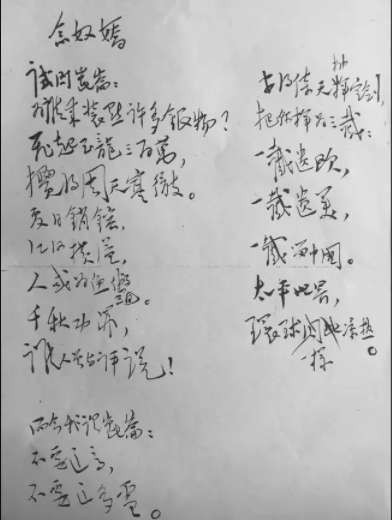 念奴嬌
试问崑崙：
为谁来装点许多银物？
飞起玉龍三百萬，
攪得周天寒徹。
夏日銷鎔，
江河横溢，
人或为鱼鱉。
千秋功罪，
谁人尝与评说！
而今我说崑崙：
不要这高，
不要这多雪。
安得倚天抽宝剑，
把你挥为三截：
一截遗欧，
一截遗美，
一截留中国。
太平世界，
環球同此凉热
。